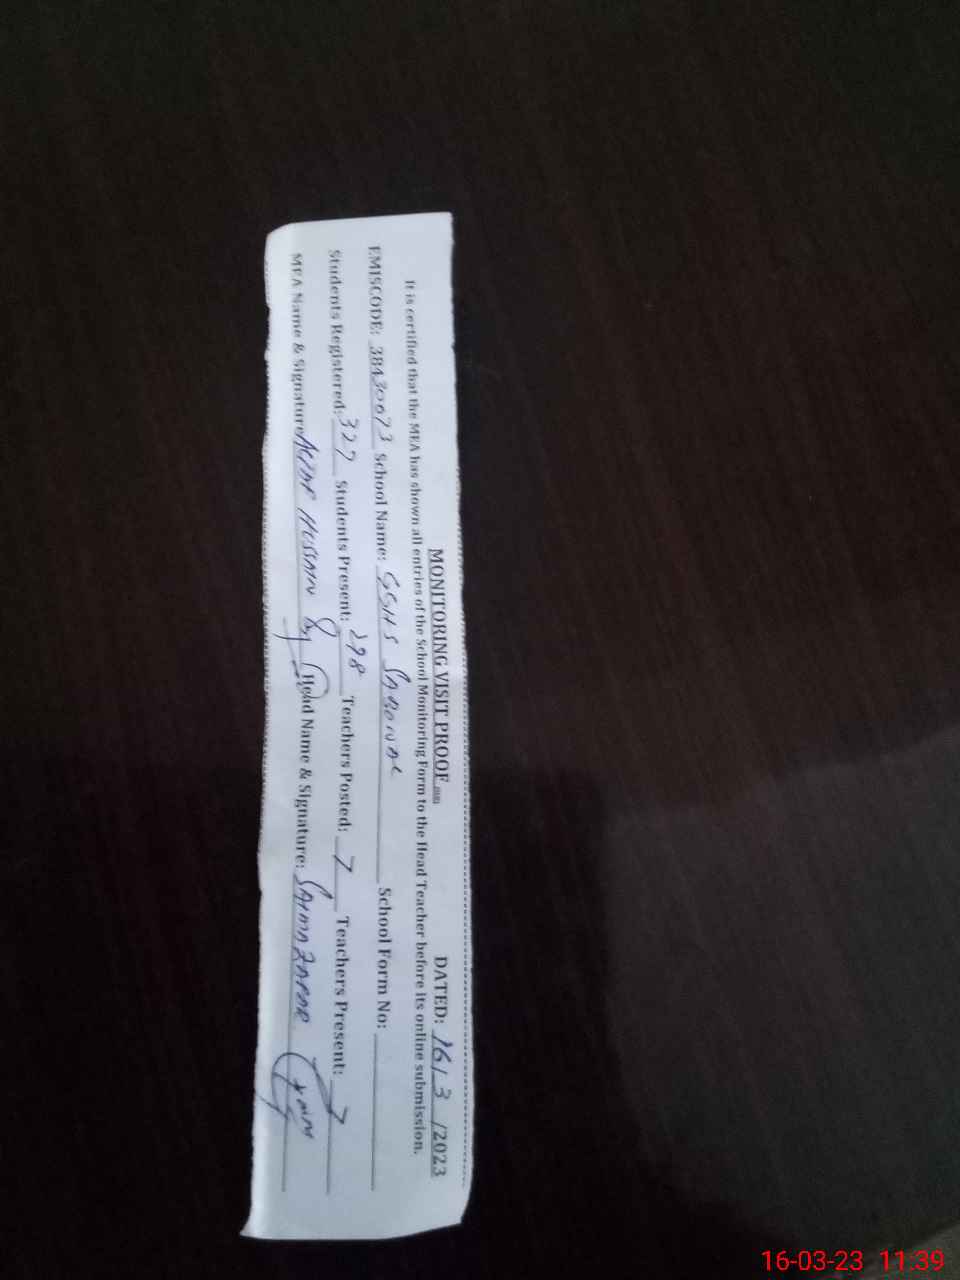 MONITORING VISIT PROOF DATED: 16/3/2023
It is certified that the MEA has shown all entries of the School Monitoring Form to the Head Teacher before its online submission.
EMISCODE: 38430673 School Name: GGHS SABOWAL School Form No:
Students Registered: 327 Students Present: 298 Teachers Posted: 7 Teachers Present: 7
MEA Name & Signature HUSSAIN Head Name & Signature: SAIMA ZAFAR
16-03-23 11:39